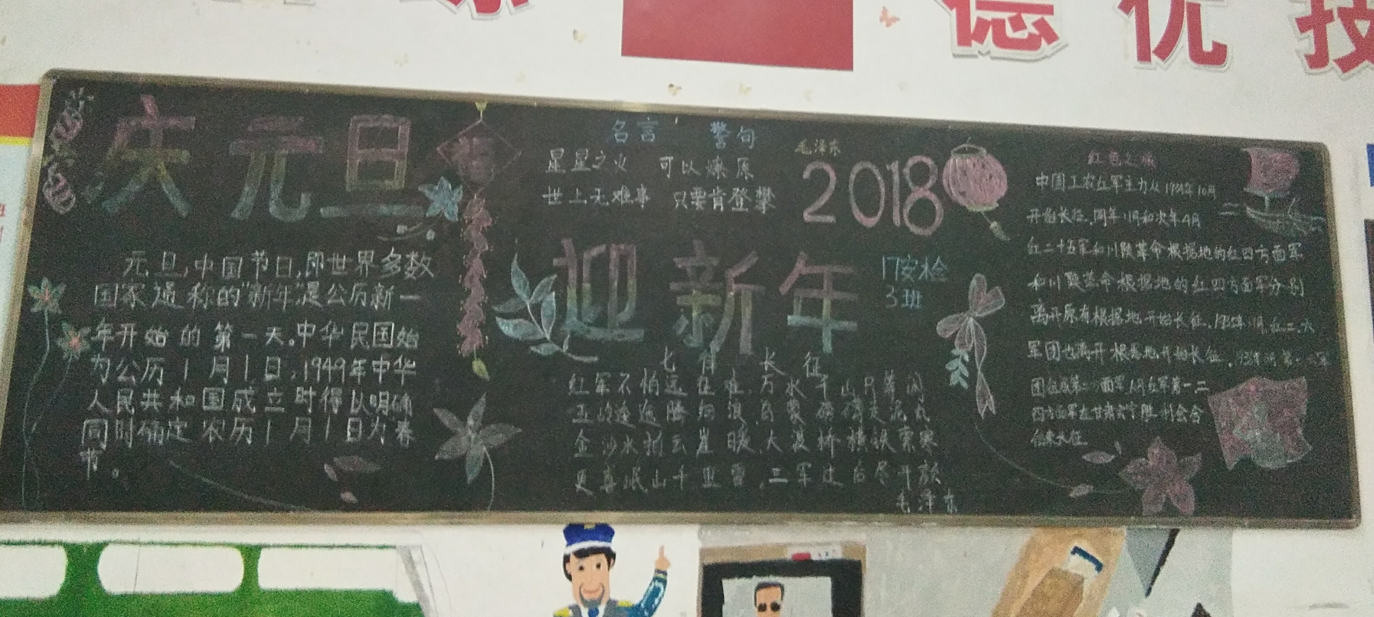 德优技
庆元旦
元旦,中国节日,即世界多数
国家通称的"新年"是公历新一
年开始的第一天.中华民国始
为公历1月1日,1949年中华
人民共和国成立时得以明确
同时确定农历1月1日为春
节。
名言 警句
星星之火 可以燎原
世上无难事 只要肯登攀
毛泽东
2018
迎新年
17安检
3班
七律 长征
红军不怕远征难,万水千山只等闲
五岭逶迤腾细浪,乌蒙磅礴走泥丸
金沙水拍云崖暖,大渡桥横铁索寒
更喜岷山千里雪,三军过后尽开颜
毛泽东
红色之旅
中国工农红军主力从1934年10月
开始长征.同年11月和次年4月
红二十五军和川陕革命根据地的红四方面军
和川陕革命根据地的红四方面军分别
离开原有根据地开始长征.1935年11月,红二、六
军团也离开根据地开始长征.
四方面军在甘肃会宁胜利会合
结束长征